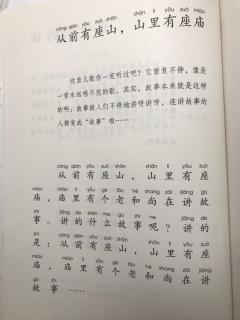 cóng qián yǒu zuò shān shān lǐ yǒu zuò miào
从前有座山，山里有座庙
这首儿歌你一定听过吧？它重复不停，像是
一首永远唱不完的歌。其实，故事本来就是这
样的啊：故事被人们不停地讲呀讲呀，连讲故事的
人都变成“故事”啦……
cóng qián yǒu zuò shān shān lǐ yǒu zuò
从前有座山，山里有座
miào miào lǐ yǒu gè lǎo hé shang zài jiǎng gù
庙，庙里有个老和尚在讲故
shi jiǎng de shén me gù shi ne jiǎng de
事。讲的什么故事呢？讲的
shì cóng qián yǒu zuò shān shān lǐ yǒu zuò
是：从前有座山，山里有座
miào miào lǐ yǒu gè lǎo hé shang zài jiǎng
庙，庙里有个老和尚在讲
gù shi
故事……